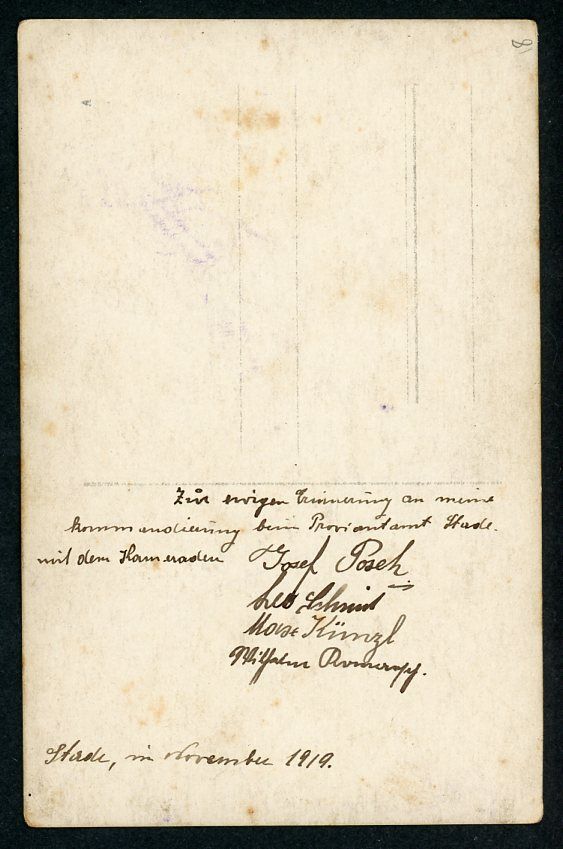 Zur ewigen Erinnerung an meine
kommandierung beim Proviantamt Stade.
mit dem Kameraden Josef Posch
Leo Schmid
Max Künzl
Wilhelm
Stade, im November 1919.